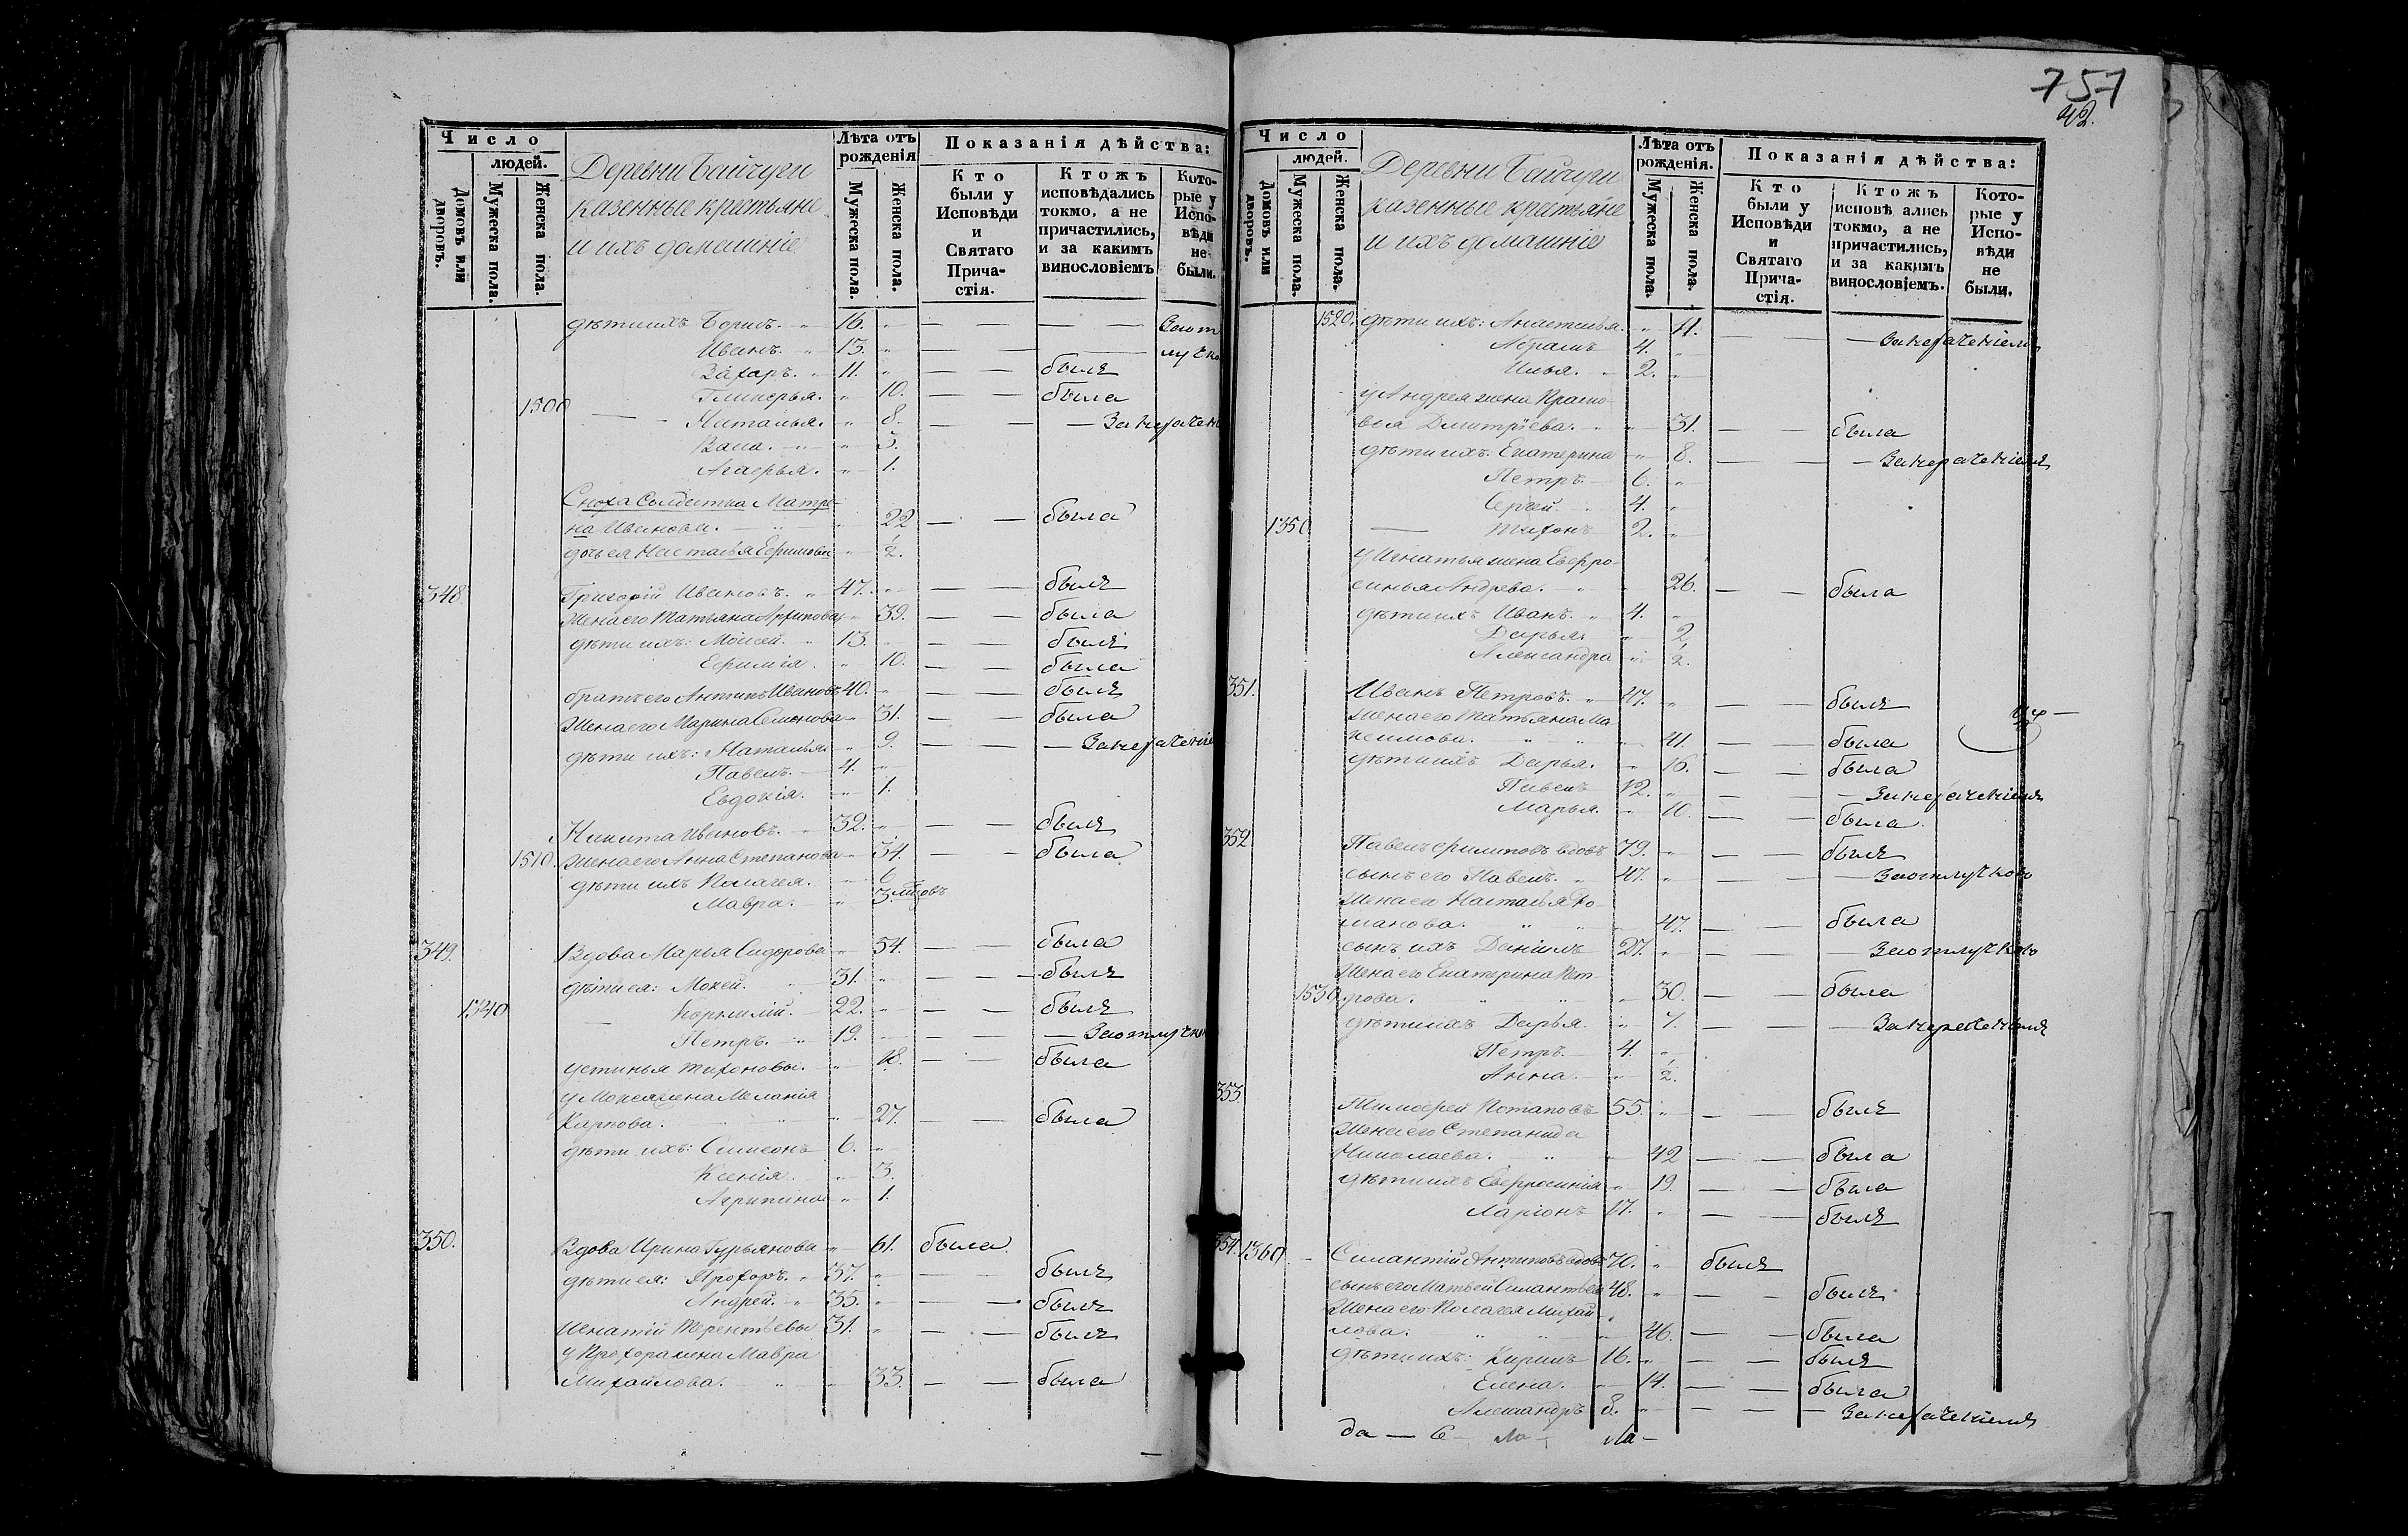 Число
людей.
Домовъ или дворовъ.
Мужеска пола.
Женска пола.
Деревни Байчуги
казенные крестьяне
и ихъ домашніе
Лѣта отъ рожденія
Мужеска пола.
Женска пола.
Показанія дѣйства:
Кто были у Исповѣди и Святаго Причастія.
Ктожъ исповѣдались токмо, а не причастились, и за какимъ винословіемъ
Которые у Исповѣди не были.
дѣти ихъ Борисъ. " 16. " — — — — Заот
Иванъ. " 13. " — — лучко
Захаръ. " 11. " — — былъ
Гликерья. " 10. — — была
1500 — Наталья. " 8. — — — Замалчені
Васа. " " 5.
Агаѳья. " 1.
Сноха Солдатка Матре-
на Иванова. " 22 — — была
дочь ея Наталья Ефимова " 1/2.
348. Григорій Ивановъ. " 47. " — — былъ
Жена его Татьяна Архипова " 39. — — была
дѣти ихъ: Моисей. " 13. " — — былъ
Ефимія. " 10. — — была
братъ его Антипъ Ивановъ 40. " — — былъ
Жена его Марина Семенова " 31. — — была
дѣти ихъ: Наталья " 9. — — —
Павелъ. — 4. "
Евдокія. " 1.
Никита Ивановъ. " 32. " — — былъ
1510. Жена его Анна Степанова " 34. — — была
дѣти ихъ Пелагея. " 6
Мавра. " 3 мѣсов
349. Вдова Марья Сидорова " 54. — — была
дѣти ея: Мокей. " 31. " — — — былъ
1340 — Корнилій. — 22. " — — былъ
Петръ. " 19. — — — Заотлучко
Устинья Тихоновы. " 18. — — была
у Мокея жена Меланія
Карпова. " 27. — — была
дѣти ихъ: Симеонъ 6. "
Ксенія. " 3.
Агрипина " 1.
350. Вдова Ирина Гурьянова " 61. была
дѣти ея: Прохоръ. " 37. " — — былъ
Андрей. " 35. " — — былъ
Игнатій Терентьевы 31. " — — былъ
у Прохора жена Мавра
Михайлова. " 33. — — была
757
42.
Число
людей.
Домовъ или дворовъ.
Мужеска пола.
Женска пола.
Деревни Байчуги
казенные крестьяне
и ихъ домашніе
Лѣта отъ рожденія.
Мужеска пола.
Женска пола.
Показанія дѣйства:
Кто были у Исповѣди и Святаго Причастія.
Ктожъ исповѣ ались токмо, а не причастились, и за какимъ винословіемъ.
Которые у Исповѣди не были.
1520. дѣти ихъ: Анастасья. " 11. — — —
Абрамъ 4. "
Илья. " 2. "
у Андрея жена Праско-
вья Дмитріева. " 31. — — была
дѣти ихъ: Екатерина " 8. — — —
Петръ. — 6. "
Сергей. " 4. "
1350 — Тихонъ 2. "
у Игнатья жена Евфро-
синья Андрева. " 26. — — была
дѣти ихъ Иванъ. " 4. "
Дарья. " 2
Александра " 1/2.
351. Иванъ Петровъ. " 47. " — — былъ
жена его Татьяна Ма
ксимова. " 41. — — была
дѣти ихъ Дарья. " 16. — — была
Павелъ 12. " — — —
Марья. " 10. — — была
352 Павелъ Филиповъ вдовъ 79. " — — былъ
сынъ его Павелъ. " 47. " — — — Заотлучкою
Жена его Настасья Ро-
манова. " 47. — — была
сынъ ихъ Даніилъ 27. " — — — Заотлучкою
Жена его Екатерина Пет-
1530. рова. " 30. — — была
дѣти ихъ Дарья. " 7. — —
Петръ. 4. "
Анна. " 1/2.
353. Тимофей Потаповъ 55. " — — былъ
Жена его Степанида
Николаева. " 42 — — была
дѣти ихъ Евфросинія " 19. — — была
Ларіонъ 17. " — — былъ
354. 1360. — Силантій Антиповъ вдовъ 70. " былъ
сынъ его Матвей Силантьевъ 48. " — — былъ
Жена его Пелагея Михай
лова. " 46. — — была
дѣти ихъ: Кирилъ 16. " — — былъ
Елена. " 14. — — была
Александръ 8. " — — —
да — 6 — ла —